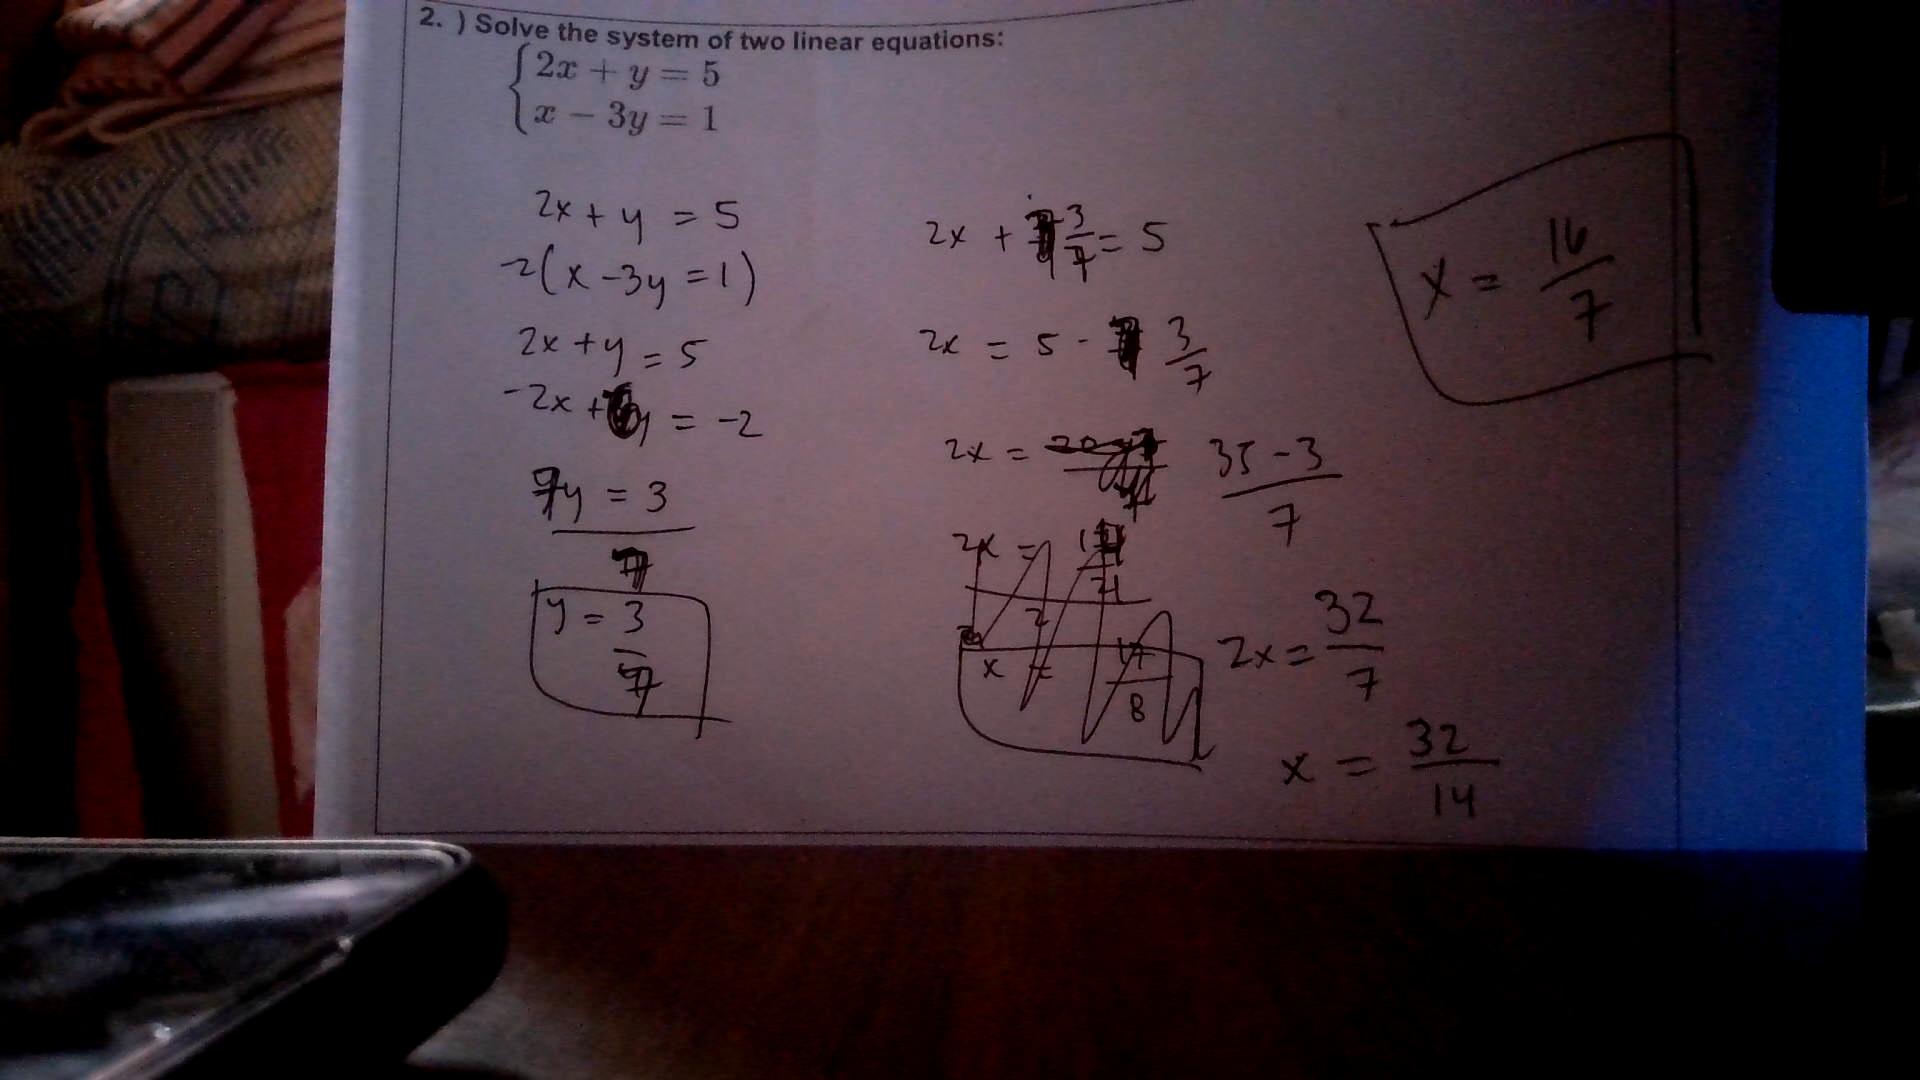 2. ) Solve the system of two linear equations:
2x + y = 5
x − 3y = 1
2x + y = 5
-2(x - 3y = 1)
2x + y = 5
-2x + 6y = -2
7y = 3
7
y = 3/7
2x + 3/7 = 5
2x = 5 - 3/7
2x = (35 - 3)/7
2x =
2
x =
8
2x = 32/7
x = 32/14
x = 16/7